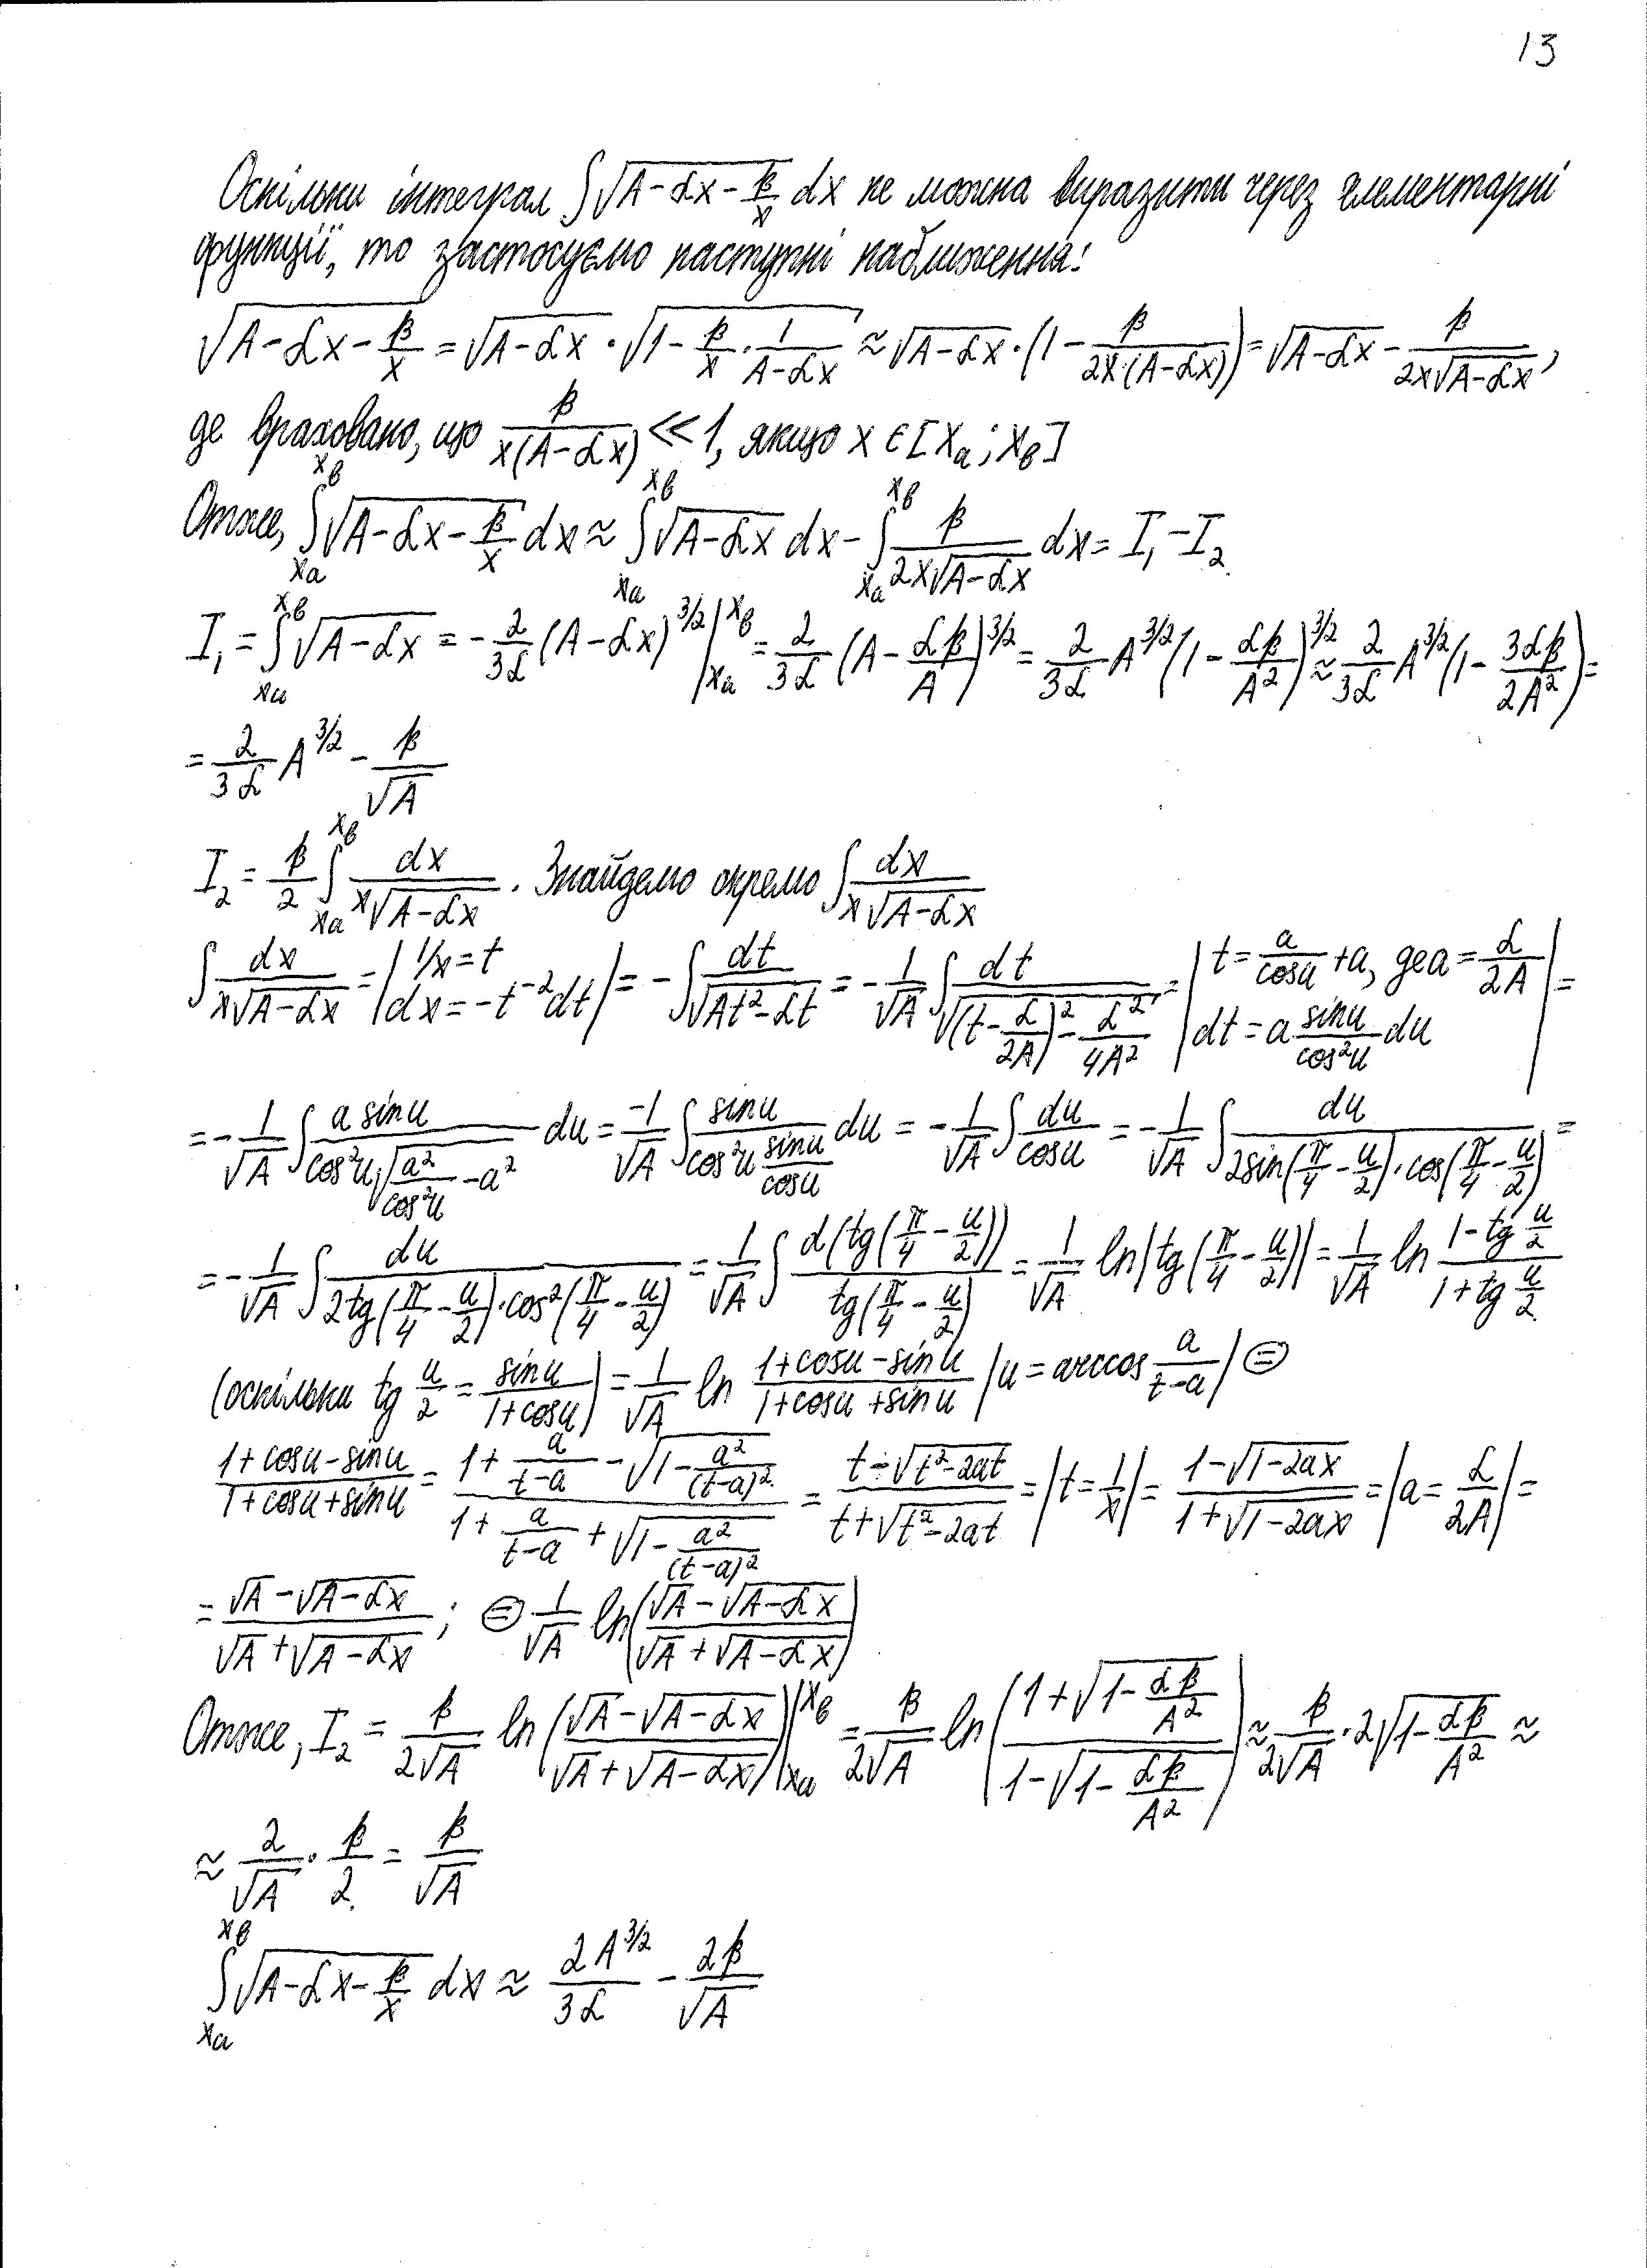 13
Оскільки інтеграл ∫√(A-αx-β/x) dx не можна виразити через елементарні
функції, то застосуємо наступні наближення:
√(A-αx-β/x) = √(A-αx) · √(1-β/x · 1/(A-αx)) ≈ √(A-αx) · (1-β/(2x·(A-αx))) = √(A-αx) - β/(2x√(A-αx)),
де враховано, що β/(x(A-αx)) ≪ 1, якщо x ∈ [x_a; x_b]
Отже, ∫_{x_a}^{x_b} √(A-αx-β/x) dx ≈ ∫_{x_a}^{x_b} √(A-αx) dx - ∫_{x_a}^{x_b} β/(2x√(A-αx)) dx = I₁ - I₂
I₁ = ∫_{x_a}^{x_b} √(A-αx) = -2/(3α) (A-αx)^{3/2} |_{x_a}^{x_b} = 2/(3α) (A-αβ/A)^{3/2} = 2/(3α) A^{3/2} (1-αβ/A²)^{3/2} ≈ 2/(3α) A^{3/2} (1-3αβ/(2A²)) =
= 2/(3α) A^{3/2} - β/√A
I₂ = β/2 ∫_{x_a}^{x_b} dx/(x√(A-αx)). Знайдемо окремо ∫ dx/(x√(A-αx))
∫ dx/(x√(A-αx)) = | 1/x = t; dx = -t⁻²dt | = -∫ dt/√(At²-αt) = -1/√A ∫ dt/√((t-α/(2A))²-α²/(4A²)) = | t = a/cosu + a, де a = α/(2A); dt = a sinu/cos²u du | =
= -1/√A ∫ a sinu/(cos²u √(a²/cos²u - a²)) du = -1/√A ∫ sinu/(cos²u sinu/cosu) du = -1/√A ∫ du/cosu = -1/√A ∫ du/(2sin(π/4-u/2)·cos(π/4-u/2)) =
= -1/√A ∫ du/(2tg(π/4-u/2)·cos²(π/4-u/2)) = 1/√A ∫ d(tg(π/4-u/2))/tg(π/4-u/2) = 1/√A ln|tg(π/4-u/2)| = 1/√A ln (1-tg u/2)/(1+tg u/2)
(оскільки tg u/2 = sinu/(1+cosu)) = 1/√A ln (1+cosu-sinu)/(1+cosu+sinu) | u = arccos a/(t-a) | ⊜
(1+cosu-sinu)/(1+cosu+sinu) = (1+a/(t-a)-√(1-a²/(t-a)²))/(1+a/(t-a)+√(1-a²/(t-a)²)) = (t-√(t²-2at))/(t+√(t²-2at)) = | t = 1/x | = (1-√(1-2ax))/(1+√(1-2ax)) = | a = α/(2A) | =
= (√A-√(A-αx))/(√A+√(A-αx)); ⊜ 1/√A ln((√A-√(A-αx))/(√A+√(A-αx)))
Отже, I₂ = β/(2√A) ln((√A-√(A-αx))/(√A+√(A-αx))) |_{x_a}^{x_b} = β/(2√A) ln((1+√(1-αβ/A²))/(1-√(1-αβ/A²))) ≈ β/(2√A) · 2√(1-αβ/A²) ≈
≈ 2/√A · β/2 = β/√A
∫_{x_a}^{x_b} √(A-αx-β/x) dx ≈ 2A^{3/2}/(3α) - 2β/√A